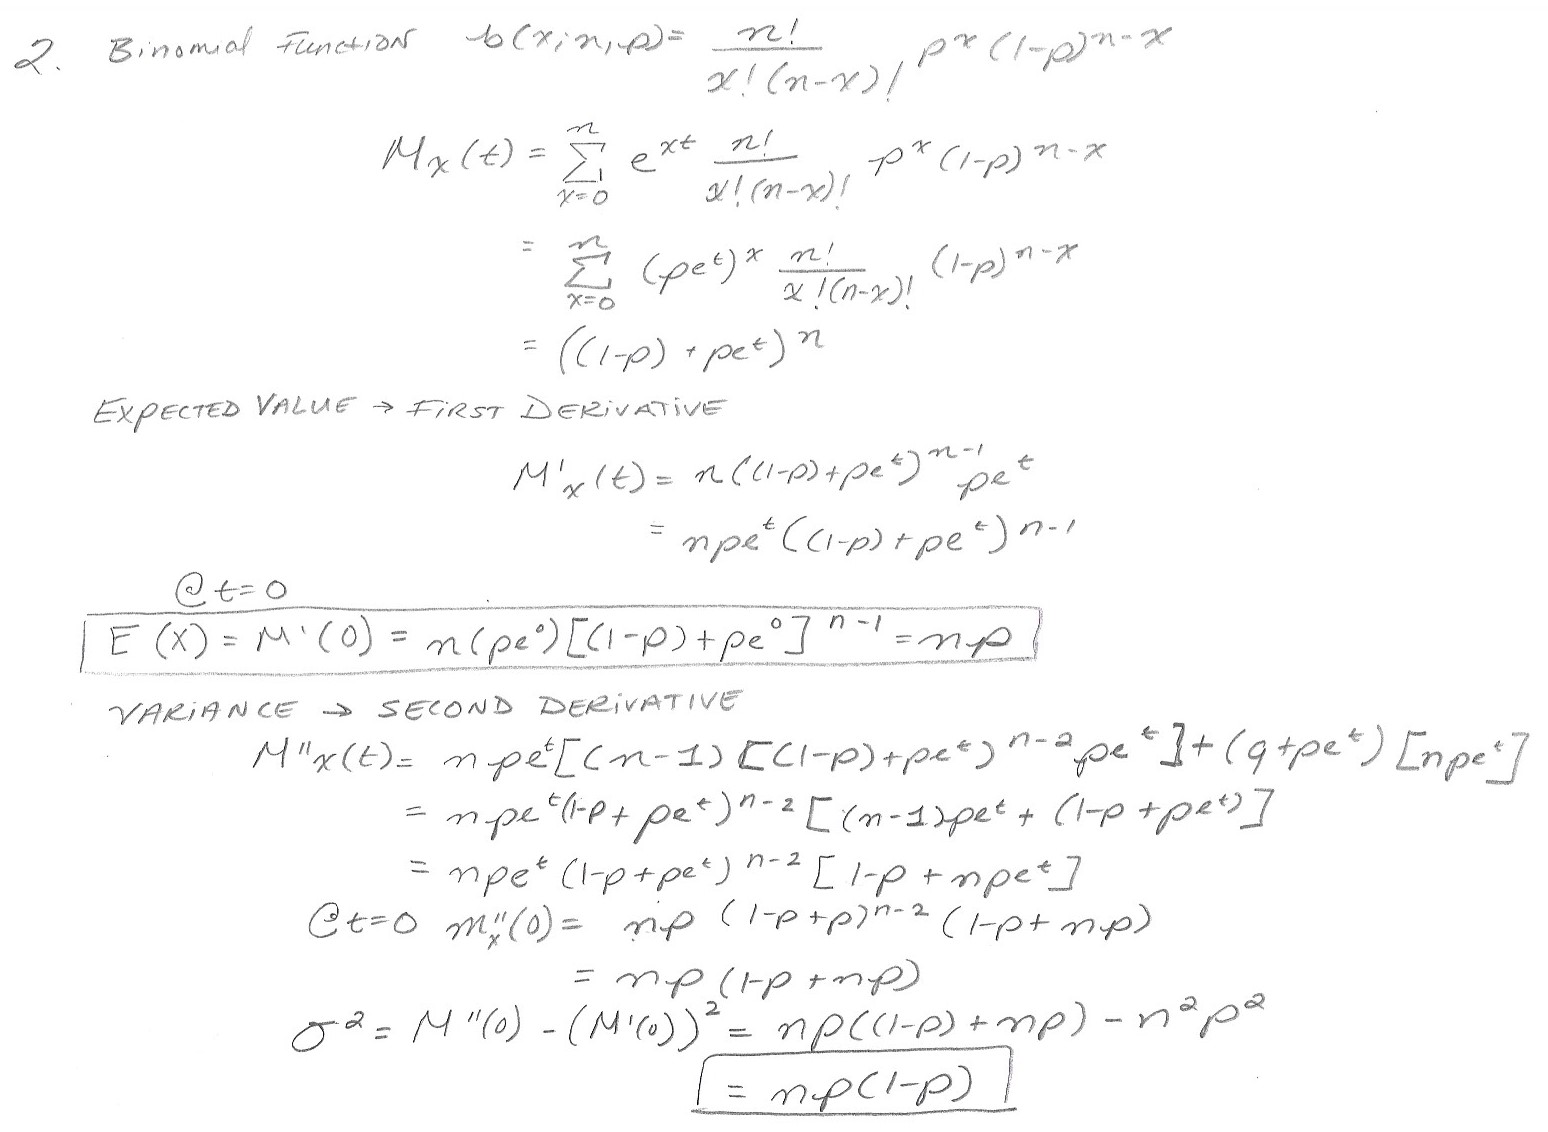 2. Binomial Function b(x;n,p) = n!/(x!(n-x)!) p^x (1-p)^(n-x)
M_X(t) = Σ_(x=0)^n e^(xt) n!/(x!(n-x)!) p^x (1-p)^(n-x)
= Σ_(x=0)^n (pe^t)^x n!/(x!(n-x)!) (1-p)^(n-x)
= ((1-p) + pe^t)^n
EXPECTED VALUE → FIRST DERIVATIVE
M'_X(t) = n((1-p)+pe^t)^(n-1) pe^t
= npe^t((1-p)+pe^t)^(n-1)
@ t=0
E(X) = M'(0) = n(pe^0)[(1-p)+pe^0]^(n-1) = np
VARIANCE → SECOND DERIVATIVE
M''_X(t) = npe^t[(n-1)[(1-p)+pe^t)^(n-2) pe^t]+(q+pe^t)[npe^t]
= npe^t(1-p+pe^t)^(n-2)[(n-1)pe^t + (1-p+pe^t)]
= npe^t(1-p+pe^t)^(n-2)[1-p+npe^t]
@t=0 m''_X(0) = np(1-p+p)^(n-2)(1-p+np)
= np(1-p+np)
σ^2 = M''(0) - (M'(0))^2 = np((1-p)+np) - n^2p^2
= np(1-p)